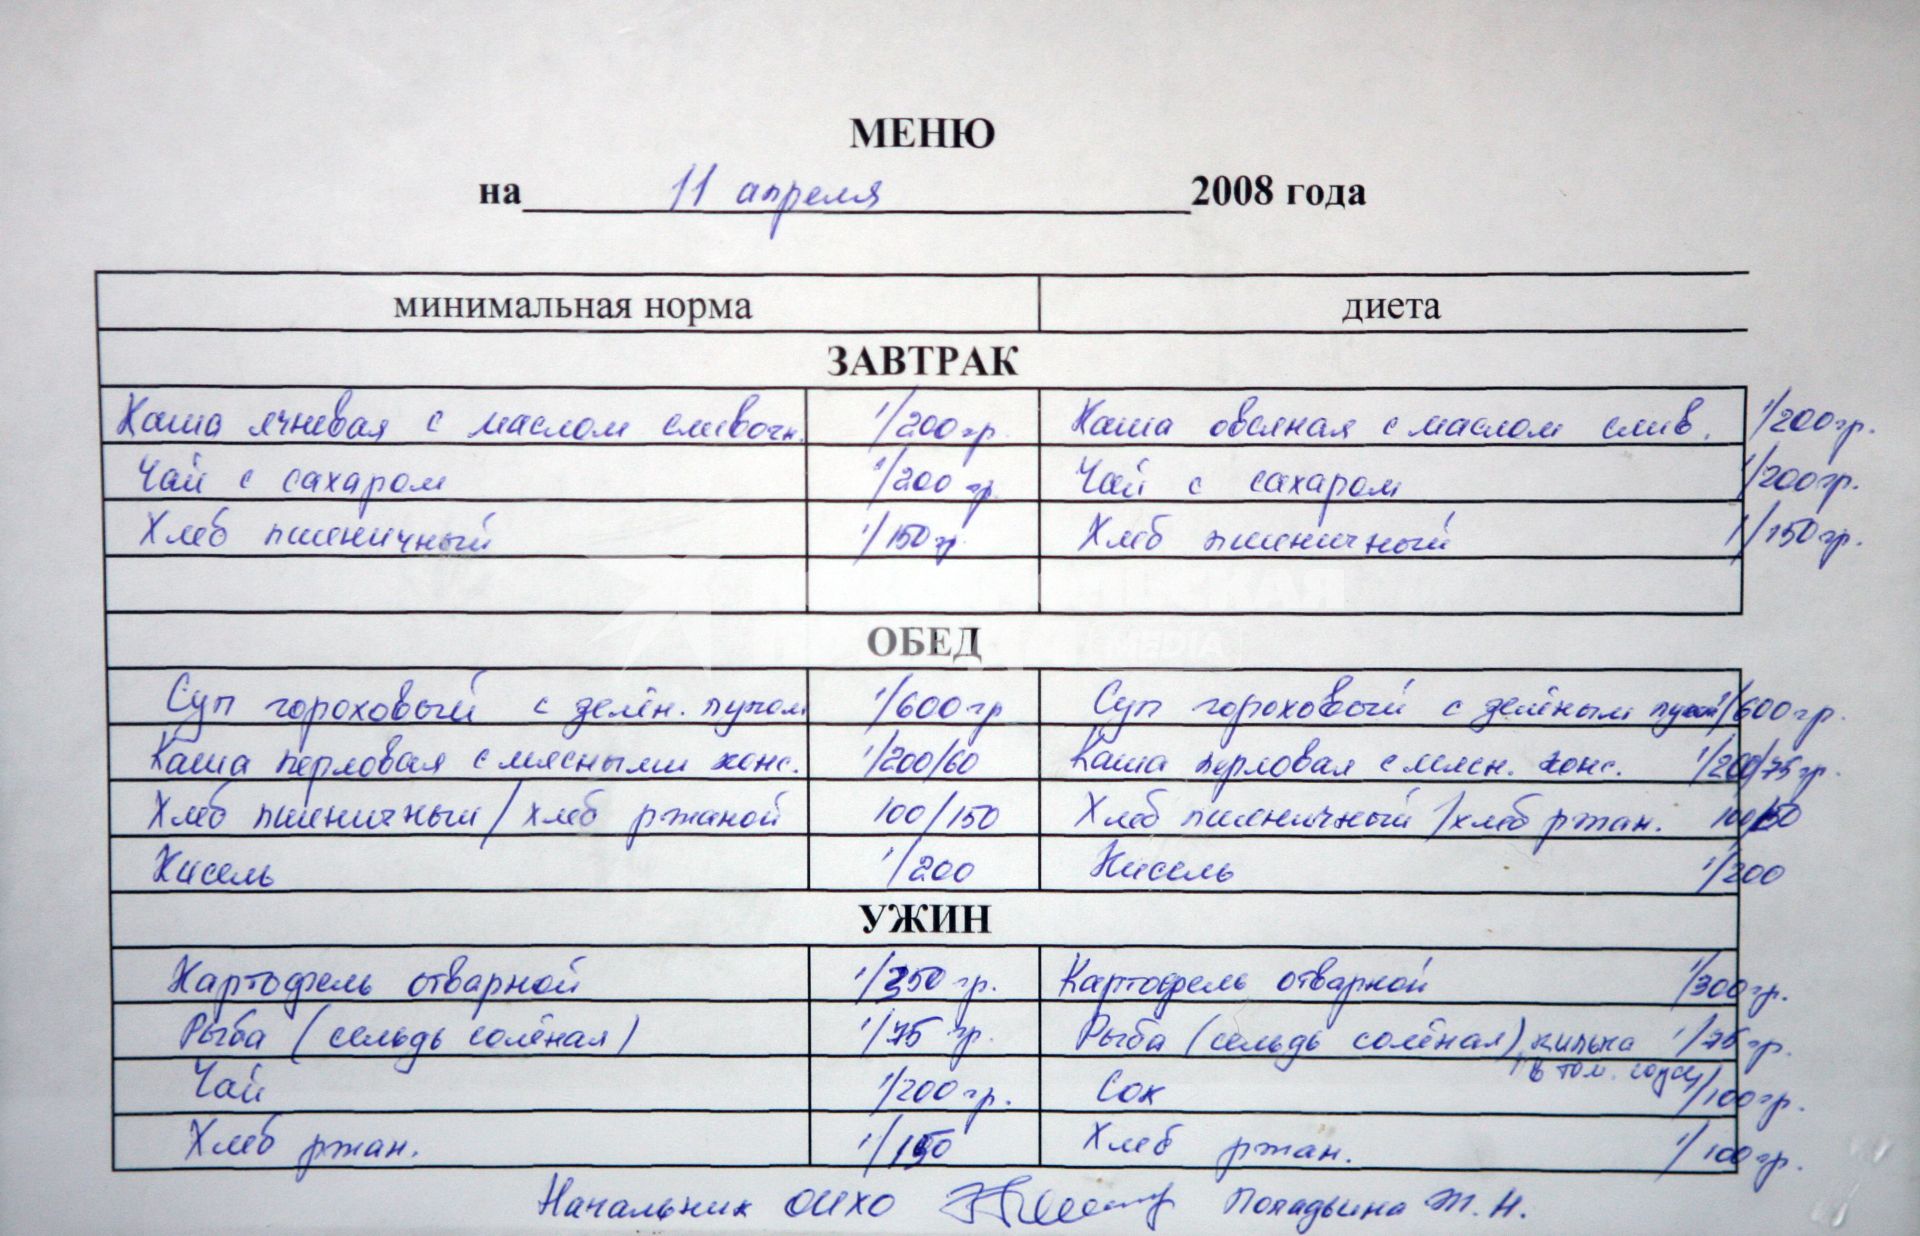 МЕНЮ
на 11 апреля 2008 года
минимальная норма диета
ЗАВТРАК
Каша ячневая с маслом сливочн. 1/200 гр. Каша овсяная с маслом слив. 1/200 гр.
Чай с сахаром 1/200 гр. Чай с сахаром 1/200 гр.
Хлеб пшеничный 1/150 гр. Хлеб пшеничный 1/150 гр.
ОБЕД
Суп гороховый с зелён. луком 1/600 гр Суп гороховый с зелёным луком 1/600 гр.
Каша перловая с мясными конс. 1/200/60 Каша перловая с мясн. конс. 1/200/75 гр.
Хлеб пшеничный / хлеб ржаной 100/150 Хлеб пшеничный / хлеб ржан. 100/150
Кисель 1/200 Кисель 1/200
УЖИН
Картофель отварной 1/350 гр. Картофель отварной 1/300 гр.
Рыба (сельдь солёная) 1/75 гр. Рыба (сельдь солёная), килька 1/75 гр.
в том. соусе
Чай 1/200 гр. Сок 1/100 гр.
Хлеб ржан. 1/150 Хлеб ржан. 1/100 гр.
Начальник ОИХО Т. Н.
MEDIA